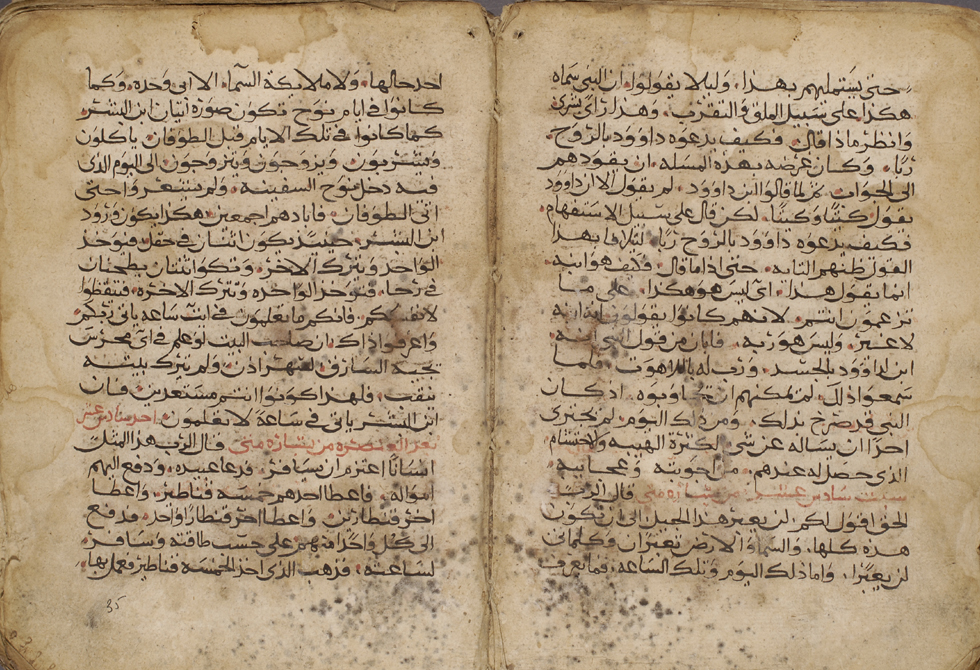 حتى يستميلهم بهذا، وليلا يقولوا ان النبي سماه
هكذا على سبيل الملق والتقرب. وهذا راى يشرى
وانظر ماذا قال. فكيف يدعوه داوود بالروح
ربا. وكان غرضه بهذه المسله. ان يقودهم
الى الجواب. فلما قالوا ابن داوود. لم يقول الا ان داوود
يقول كيت وكيت. لكن قال على سبيل الاستفهام
فكيف يدعوه داوود بالروح ربا. ليلا بهذا
القول ظنهم التابه. حتى اذا ما قال. فكيف هو ابنه
انما يقول هذا. اي ليس هو هكذا. على ما
تزعمون انتم. لانهم كانوا يقولون انه ابنه
لا غير. وليس هو ربه. فابان من قول النبي انه
ابن لداوود بالجسد. ورب له باللاهوت. فلما
سمعوا ذلك لم يمكنهم ان يجاوبوه. اذ كان
النبي قد صرح بذلك. ومن ذلك اليوم. لم يجترى
احدا ان يساله عن شي لكثرة الهيبه والاحتشام
الذي حصل له عندهم. من اجوبته وعجايبه
سبت سادس عشر من بشارة متى قال الرب
الحق اقول لكم لن يعبر هذا الجيل الى ان تكون
هذه كلها. والسما والارض تعبران وكلماتى
لن يعبرا. واما ذلك اليوم وتلك الساعه. فما يعرف
احد حالها. ولا ملايكة السما. الا ابى وحده. وكما
كانوا في ايام نوح تكون صورة اتيان ابن البشر.
كما كانوا في تلك الايام قبل الطوفان ياكلون
ويشربون. ويزوجون ويتزوجون. الى اليوم الذي
فيه دخل نوح السفينه. ولم يشعروا حتى
اتى الطوفان. فابادهم اجمعين. هكذا يكون ورود
ابن البشر. حينيذ يكون اثنان في حقل فيوخذ
الواحد ويترك الاخر. وتكو اثنتان يطحنان
في رحا. فتوخذ الواحده وتترك الاخره. فتيقظوا
لانفسكم. فانكم ما تعلمون في ايت ساعه ياتى ربكم
واعرفوا ذاك. ان صاحب البيت لو علم في اى محرس
يجيه السارق. لسهر اذن. ولم يترك بيته
ينقب. فلهذا كونوا انتم مستعدين. فان
ابن البشر ياتى في ساعة لا تعلمون. احد سادس عشر
بعد العنصره من بشارة متى قال الرب هذا المثل
انسانا اعتزم ان يسافر. فدعا عبيده. ودفع اليهم
امواله. فاعطا احدهم خمسه قناطير. واعطا
اخر قنطارين. واعطا اخر قنطارا واحد. فدفع
الى كل واحدا منهم على حسب طاقته وسافر
لساعته. فذهب الذي اخذ الخمسه قناطير فعمل بها.
35